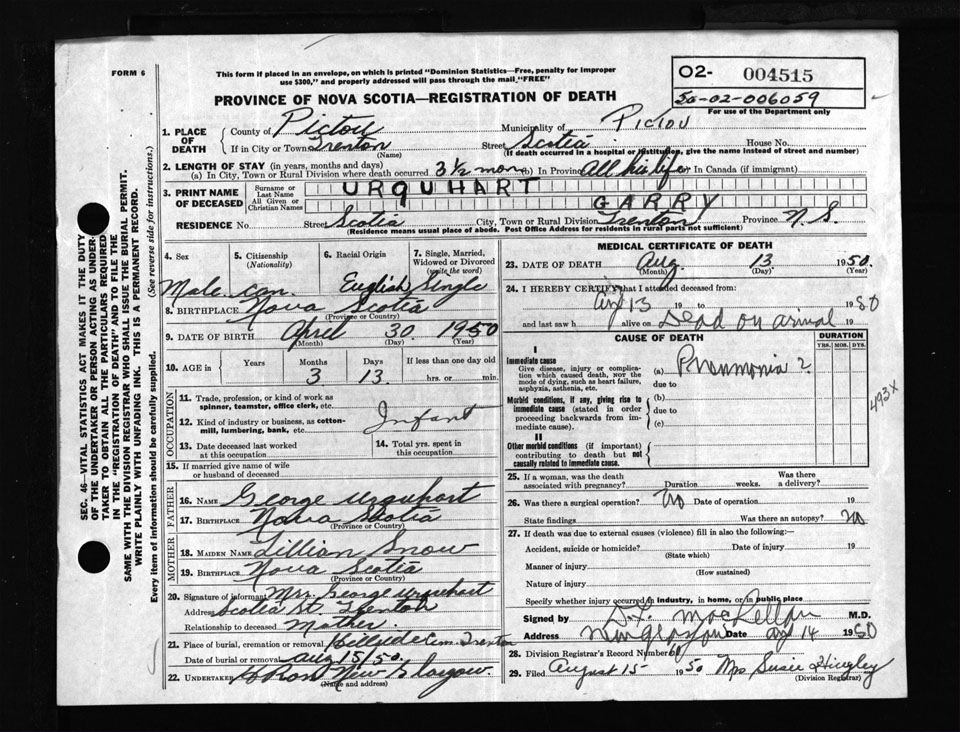 FORM 6
This form if placed in an envelope, on which is printed "Dominion Statistics—Free, penalty for improper
use $300," and properly addressed will pass through the mail "FREE"
O2- 004515
50-02-006059
For use of the Department only
PROVINCE OF NOVA SCOTIA—REGISTRATION OF DEATH
1. PLACE OF DEATH
County of Pictou Municipality of Pictou
If in City or Town Trenton (Name) Street Scotia House No.
(If death occurred in a hospital or institution, give the name instead of street and number)
2. LENGTH OF STAY (in years, months and days)
(a) In City, Town or Rural Division where death occurred 3 ½ mon (b) In Province All his life In Canada (if immigrant)
3. PRINT NAME OF DECEASED
Surname or Last Name URQUHART
All Given or Christian Names GARRY
RESIDENCE No. Street Scotia City, Town or Rural Division Trenton Province N.S.
(Residence means usual place of abode. Post Office Address for residents in rural parts not sufficient)
4. Sex Male
5. Citizenship (Nationality) Can.
6. Racial Origin English
7. Single, Married, Widowed or Divorced (write the word) Single
8. BIRTHPLACE Nova Scotia
(Province or Country)
9. DATE OF BIRTH April 30 1950
(Month) (Day) (Year)
10. AGE in Years Months 3 Days 13 If less than one day old hrs. or min.
OCCUPATION
11. Trade, profession, or kind of work as
spinner, teamster, office clerk, etc.
12. Kind of industry or business, as cotton-
mill, lumbering, bank, etc. Infant
13. Date deceased last worked
at this occupation
14. Total yrs. spent in
this occupation
15. If married give name of wife
or husband of deceased
FATHER
16. NAME George Urquhart
17. BIRTHPLACE Nova Scotia
(Province or Country)
MOTHER
18. MAIDEN NAME Lillian Snow
19. BIRTHPLACE Nova Scotia
(Province or Country)
20. Signature of informant Mrs. George Urquhart
Address Scotia St. Trenton
Relationship to deceased Mother.
21. Place of burial, cremation or removal Cem. Trenton
Date of burial or removal Aug 15/50.
22. UNDERTAKER New Glasgow.
(Name and address)
MEDICAL CERTIFICATE OF DEATH
23. DATE OF DEATH Aug. 13 1950.
(Month) (Day) (Year)
24. I HEREBY CERTIFY that I attended deceased from:
Aug 13 19 to 1950
and last saw h alive on Dead on arrival 19
CAUSE OF DEATH
DURATION
YRS. MOS. DYS.
I
Immediate cause
Give disease, injury or complica-
tion which caused death, NOT the
mode of dying, such as heart failure,
asphyxia, asthenia, etc.
(a) Pneumonia ?
due to
Morbid conditions, if any, giving rise to
immediate cause (stated in order
proceeding backwards from im-
mediate cause).
(b)
due to
(c)
493X
II
Other morbid conditions (if important)
contributing to death but not
causally related to immediate cause.
25. If a woman, was the death
associated with pregnancy? Duration weeks. Was there
a delivery?
26. Was there a surgical operation? No Date of operation 19
State findings Was there an autopsy? No
27. If death was due to external causes (violence) fill in also the following:
Accident, suicide or homicide? Date of injury 19
(State which)
Manner of injury
(How sustained)
Nature of injury
Specify whether injury occurred in industry, in home, or in public place
Signed by MacLellan M.D.
Address New Glasgow Date Aug 14 1950
28. Division Registrar's Record Number 60
29. Filed August 15 1950 Mrs Susie Hingley
(Division Registrar)
SEC. 46—VITAL STATISTICS ACT MAKES IT THE DUTY
OF THE UNDERTAKER OR PERSON ACTING AS UNDER-
TAKER TO OBTAIN ALL THE PARTICULARS REQUIRED
IN THE "REGISTRATION OF DEATH" AND TO FILE THE
SAME WITH THE DIVISION REGISTRAR WHO SHALL ISSUE THE BURIAL PERMIT.
WRITE PLAINLY WITH UNFADING INK. THIS IS A PERMANENT RECORD.
Every item of information should be carefully supplied. (See reverse side for instructions.)